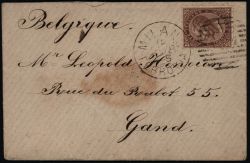 Belgique
MILANO
Mr Leopold
Rue du Poulet 55.
Gand.